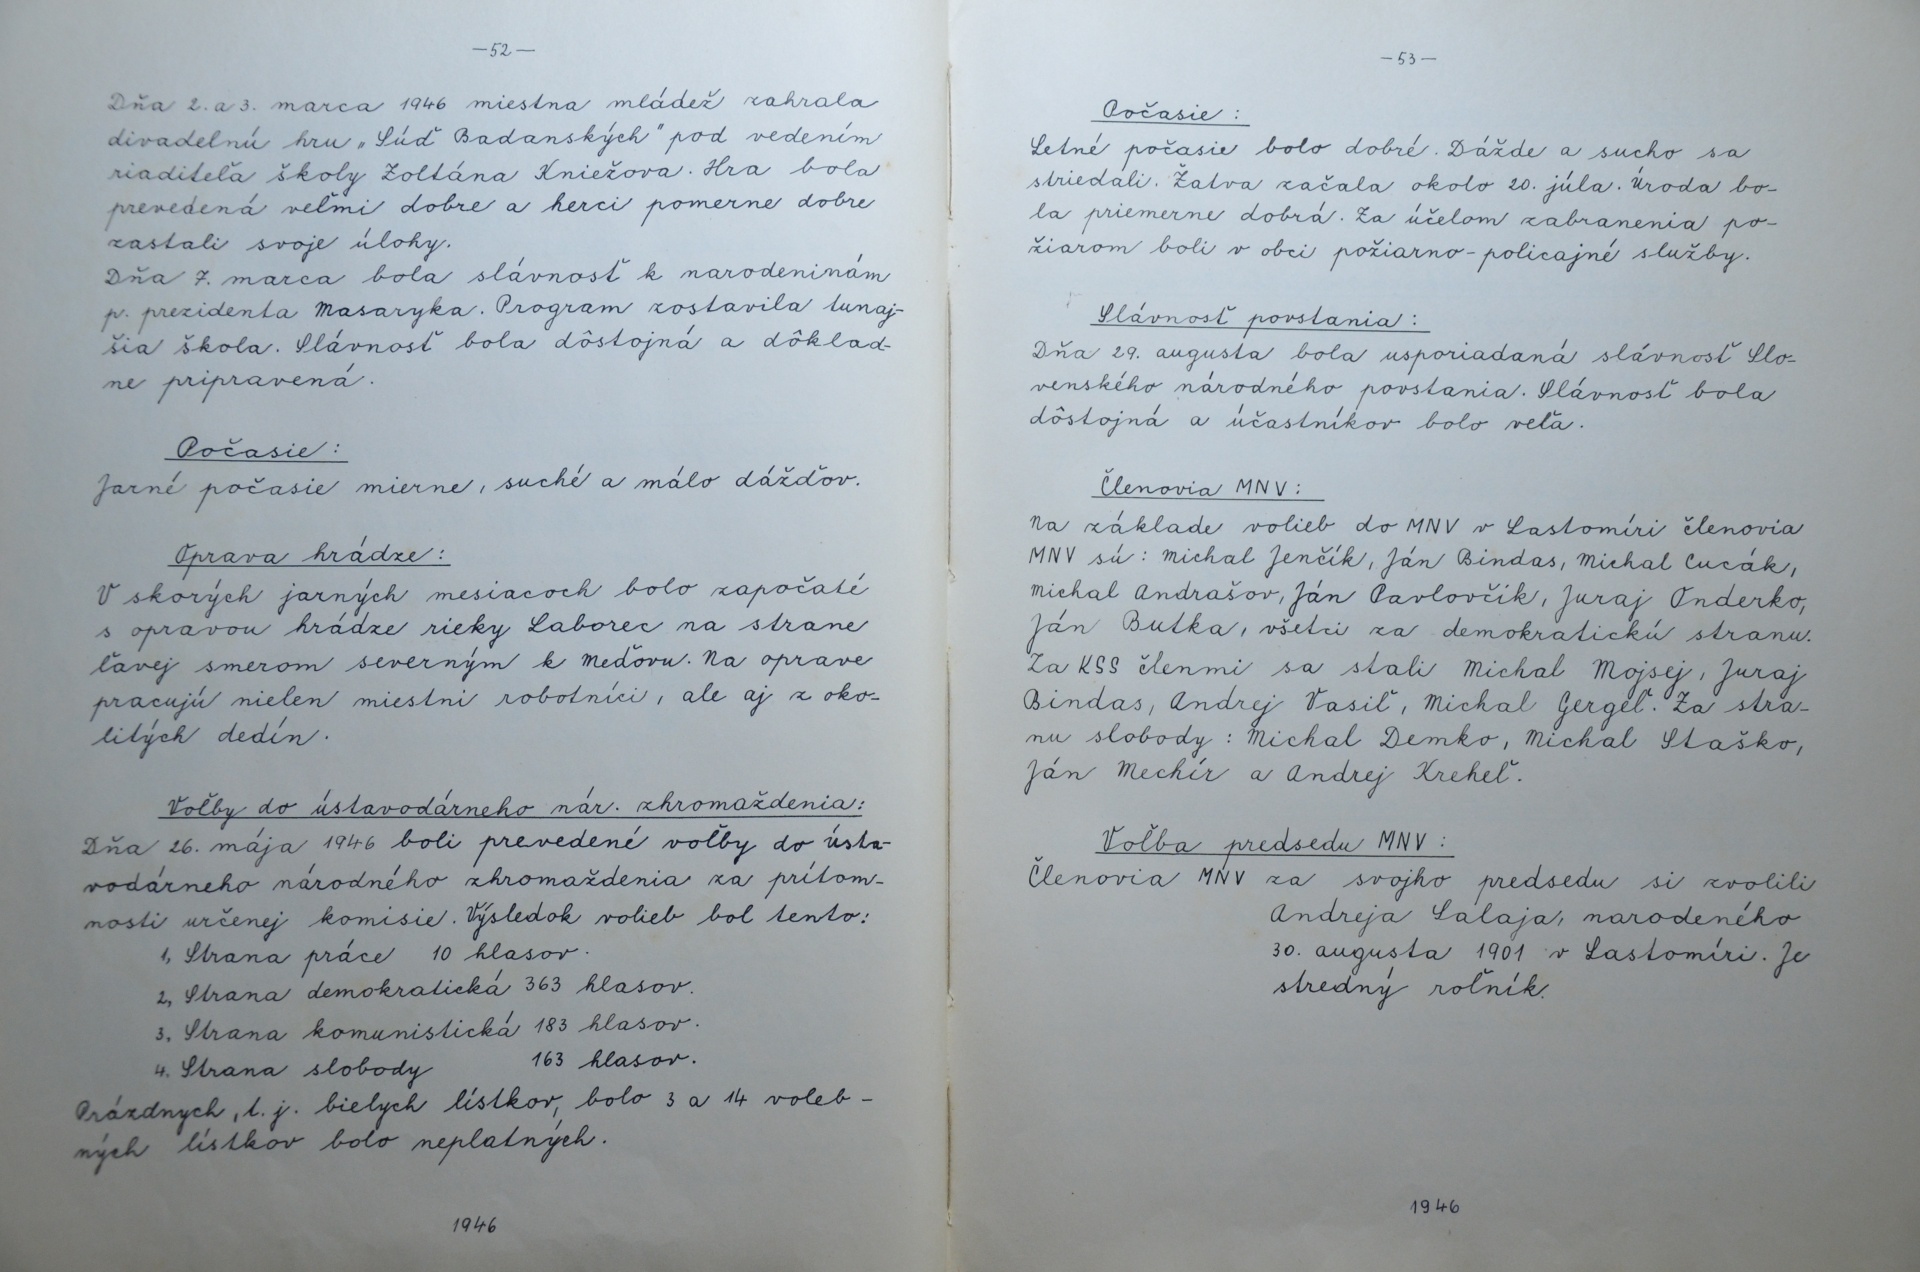 —52—
Dňa 2. a 3. marca 1946 miestna mládež zahrala
divadelnú hru „Súd Badanských" pod vedením
riaditeľa školy Zoltána Kniežova. Hra bola
prevedená veľmi dobre a herci pomerne dobre
zastali svoje úlohy.
Dňa 7. marca bola slávnosť k narodeninám
p. prezidenta Masaryka. Program zostavila tunaj-
šia škola. Slávnosť bola dôstojná a dôklad-
ne pripravená.
Počasie:
Jarné počasie mierne, suché a málo dážďov.
Oprava hrádze:
V skorých jarných mesiacoch bolo započaté
s opravou hrádze rieky Laborec na strane
ľavej smerom severným k Meďovu. Na oprave
pracujú nielen miestni robotníci, ale aj z oko-
litých dedín.
Voľby do ústavodárneho nár. zhromaždenia:
Dňa 26. mája 1946 boli prevedené voľby do ústa-
vodárneho národného zhromaždenia za prítom-
nosti určenej komisie. Výsledok volieb bol tento:
1, Strana práce 10 hlasov.
2, Strana demokratická 363 hlasov.
3, Strana komunistická 183 hlasov.
4. Strana slobody 163 hlasov.
Prázdnych, t. j. bielych lístkov, bolo 3 a 14 voleb-
ných lístkov bolo neplatných.
1946
—53—
Počasie:
Letné počasie bolo dobré. Dážde a sucho sa
striedali. Žatva začala okolo 20. júla. Úroda bo-
la priemerne dobrá. Za účelom zabranenia po-
žiarom boli v obci požiarno-policajné služby.
Slávnosť povstania:
Dňa 29. augusta bola usporiadaná slávnosť Slo-
venského národného povstania. Slávnosť bola
dôstojná a účastníkov bolo veľa.
Členovia MNV:
Na základe volieb do MNV v Lastomíri členovia
MNV sú: Michal Jenčík, Ján Bindas, Michal Cucák,
Michal Andrašov, Ján Pavlovčik, Juraj Onderko,
Ján Butka, všetci za demokratickú stranu.
Za KSS členmi sa stali Michal Mojsej, Juraj
Bindas, Andrej Vasiľ, Michal Gergeľ. Za stra-
nu slobody: Michal Demko, Michal Staško,
Ján Mechír a Andrej Kreheľ.
Voľba predsedu MNV:
Členovia MNV za svojho predsedu si zvolili
Andreja Salaja, narodeného
30. augusta 1901 v Lastomíri. Je
stredný roľník.
1946